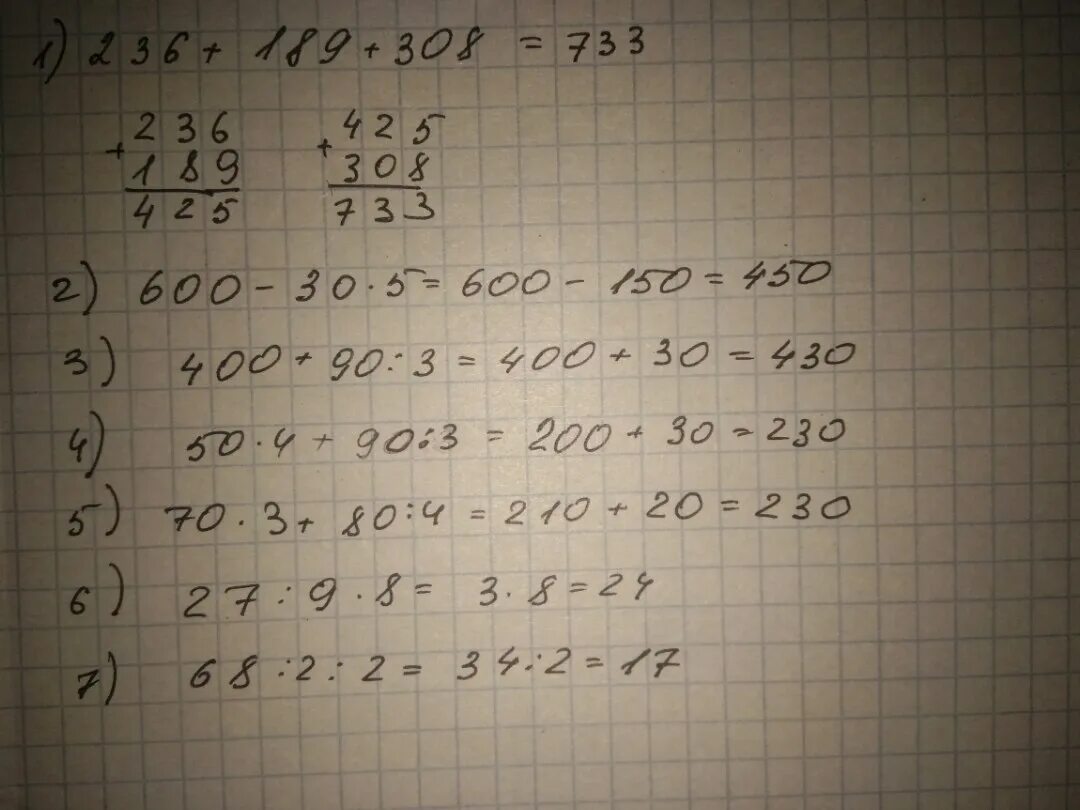 1) 236 + 189 + 308 = 733
236 425
+ +
189 308
425 733
2) 600 - 30 · 5 = 600 - 150 = 450
3) 400 + 90 : 3 = 400 + 30 = 430
4) 50 · 4 + 90 : 3 = 200 + 30 = 230
5) 70 · 3 + 80 : 4 = 210 + 20 = 230
6) 27 : 9 · 8 = 3 · 8 = 24
7) 68 : 2 : 2 = 34 : 2 = 17